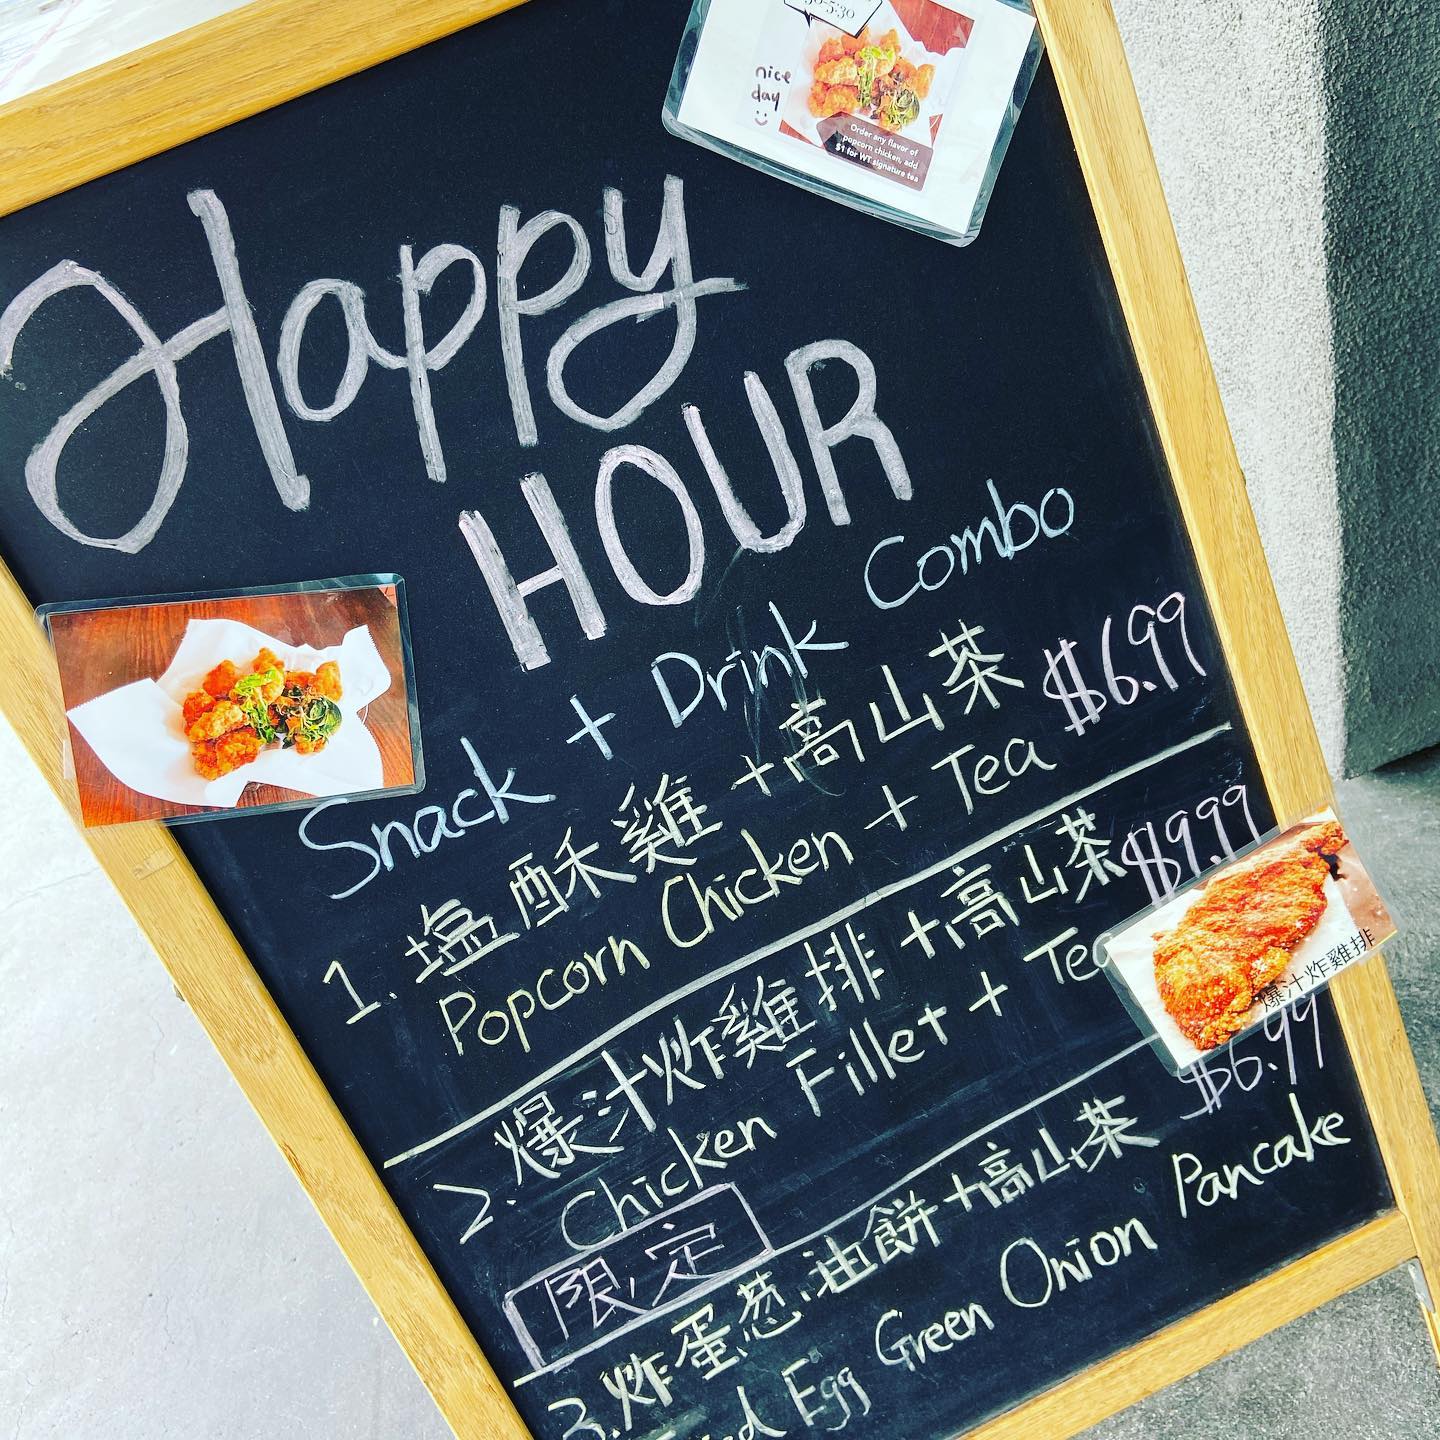 30-5:30
nice
day
Order any flavor of
popcorn chicken, add
$1 for WT signature tea
Happy
HOUR
Snack + Drink Combo
1. 塩酥雞 + 高山茶 $6.99
Popcorn Chicken + Tea
2. 爆汁炸雞排 + 高山茶 $9.99
Chicken Fillet + Tea
爆汁炸雞排
限定
3. 炸蛋葱油餅 + 高山茶 $6.99
Egg Green Onion Pancake